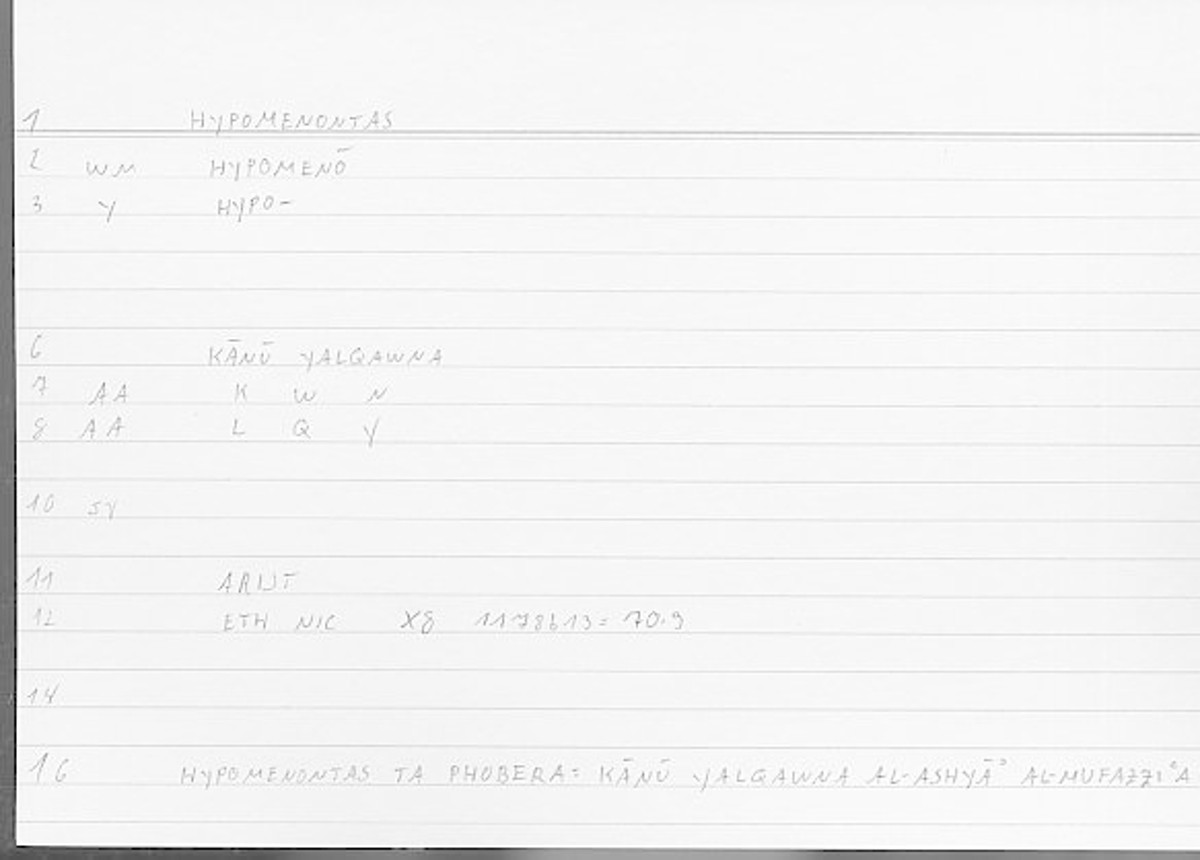 1 HYPOMENONTAS
2 WM HYPOMENŌ
3 Y HYPO-
6 KĀNŪ YALQAWNA
7 AA K W N
8 AA L Q Y
10 SY
11 ARIST
12 ETH NIC X8 1178b13=70.9
14
16 HYPOMENONTAS TA PHOBERA: KĀNŪ YALQAWNA AL-ASHYĀʾ AL-MUFAZZIʿA